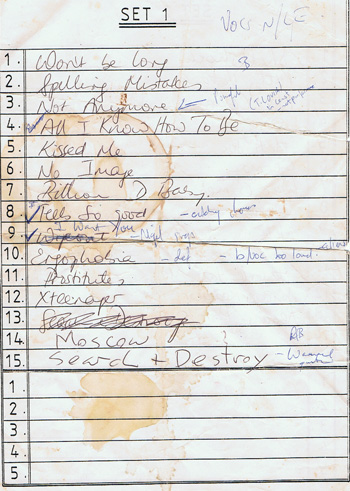 SET 1
VOCS N/LE
1. Won't be long 3
2. Spelling Mistakes
3. Not Anymore
4. All I Know How To Be
5. Kissed Me
6. No Image
7. Billion D Baby
8. Feels So good - ending
I Want You
9. - Nigel
10. Ergophobia - - b/voc too loud
11. Prostitutes
12. Xteenager
13.
14. Moscow ? AB
15. Search + Destroy -
1.
2.
3.
4.
5.